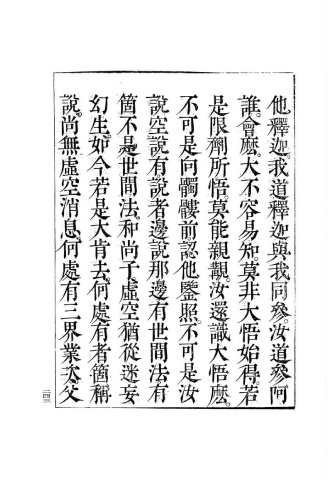 他釋迦。我道釋迦與我同參。汝道參阿
誰。會麽。大不容易知。莫非大悟始得。若
是限劑所悟。莫能親覩。汝還識大悟麽。
不可是向髑髏前認他鑒照。不可是汝
說空說有說者邊說那邊有世間法有
箇不是世間法。和尚子虛空猶從迷妄
幻生。如今若是大肯去。何處有者箇稱
說。尚無虛空消息。何處有三界業次父
二四三